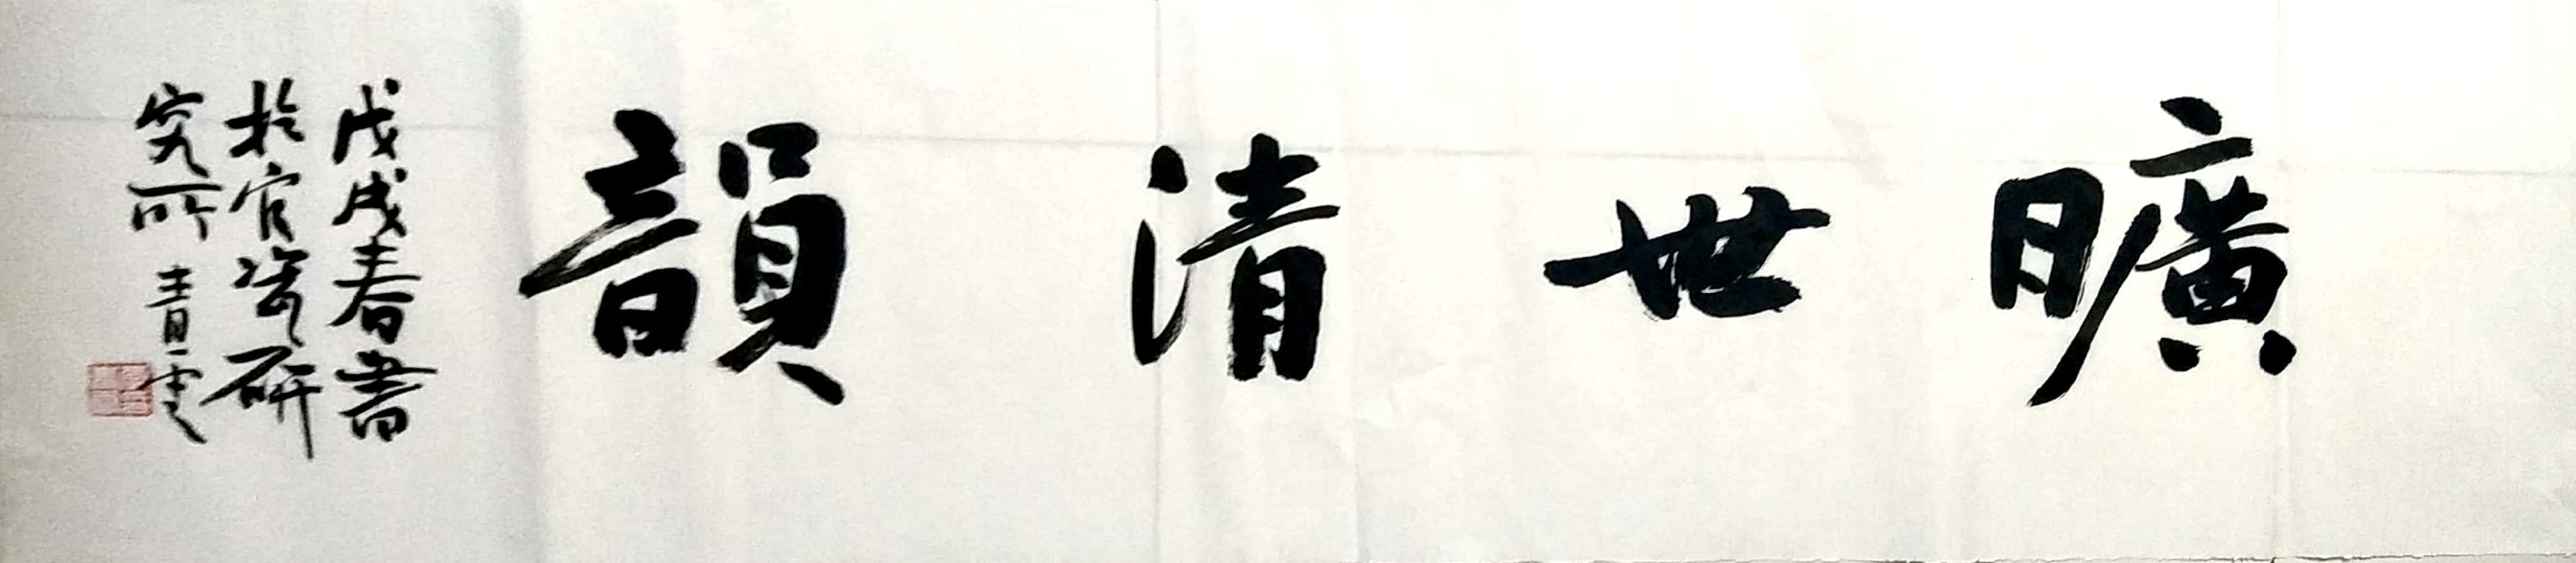 曠世清韻
戊戌春書
於官瓷研
究所 青雲